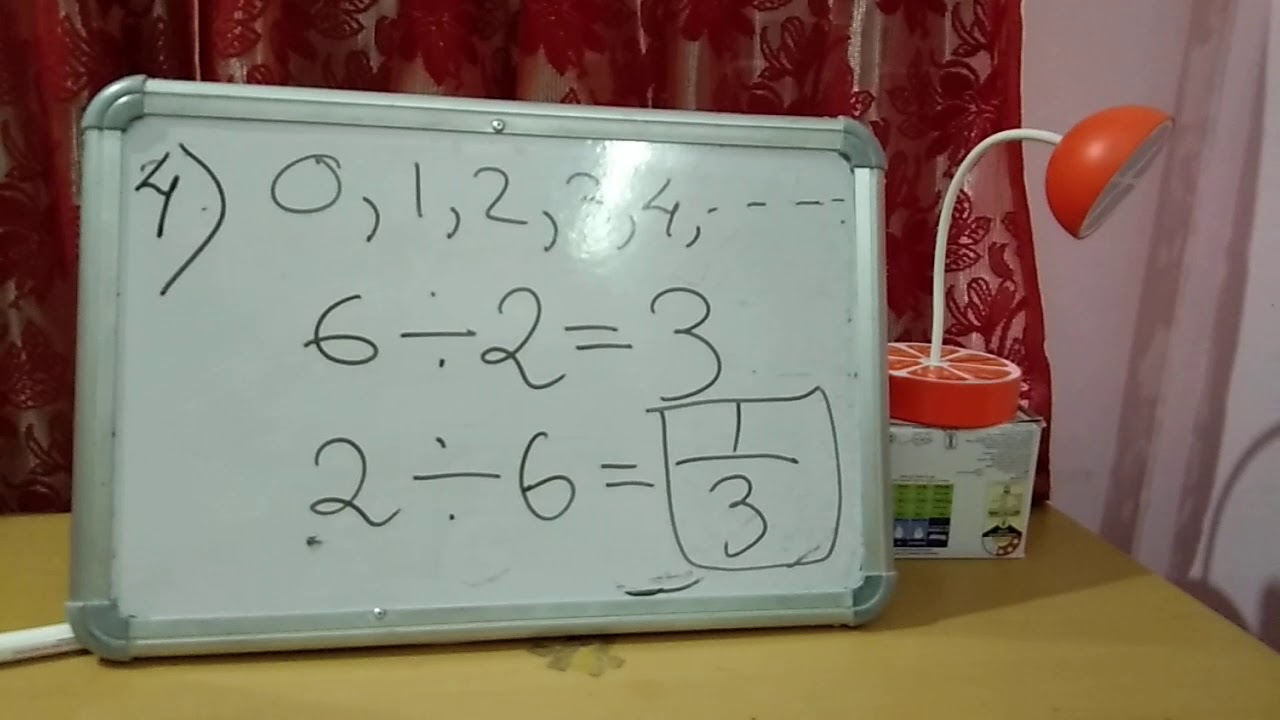 4) 0, 1, 2, 3, 4, - - - -
6 ÷ 2 = 3
2 ÷ 6 = 1/3